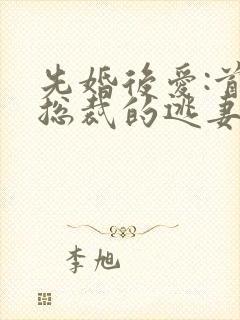 先婚後爱:首
总裁的逃妻
李旭